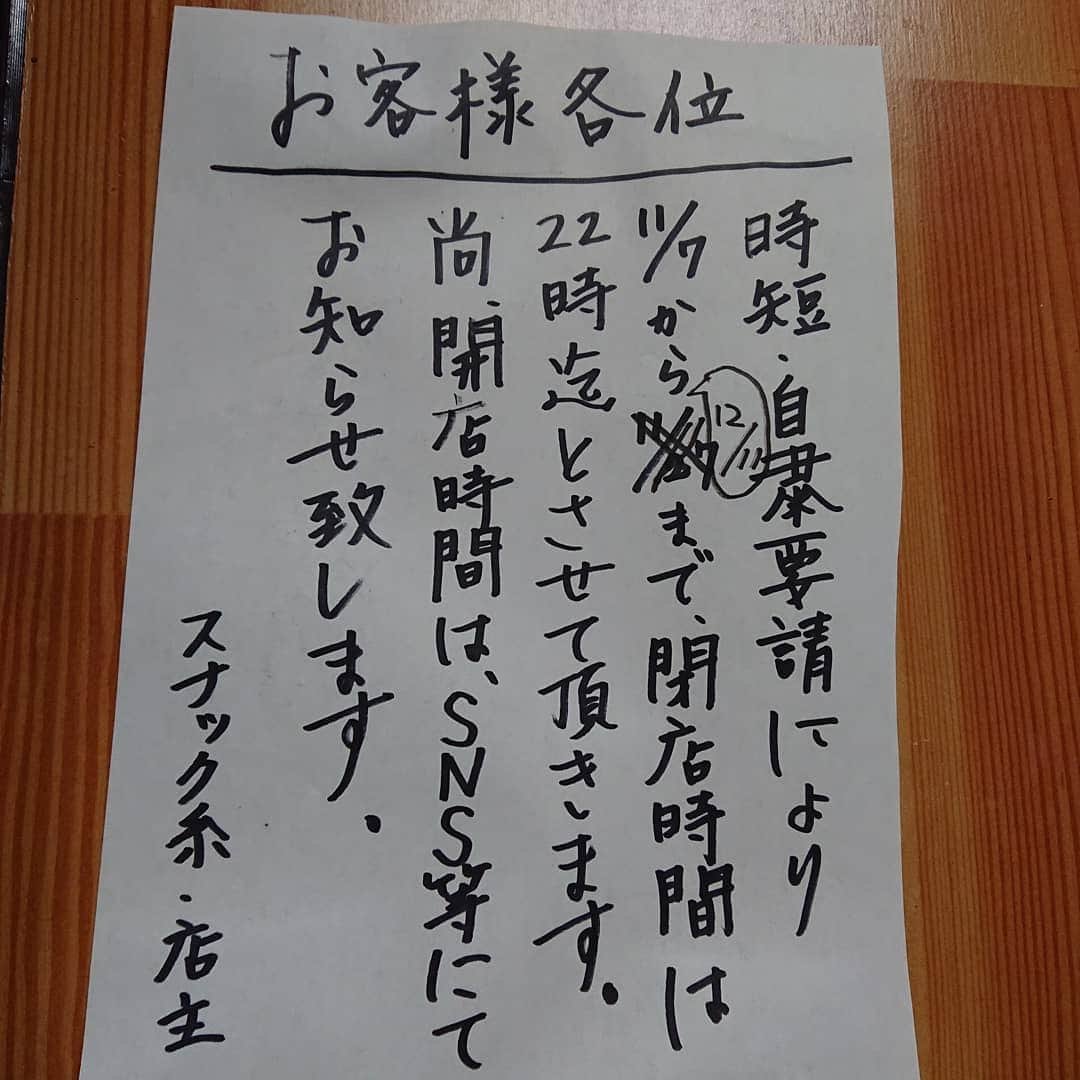 お客様各位
時短・自粛要請により
11/7から12/11まで、閉店時間は
22時迄とさせて頂きます。
尚、開店時間は、SNS等にて
お知らせ致します。
スナック糸・店主